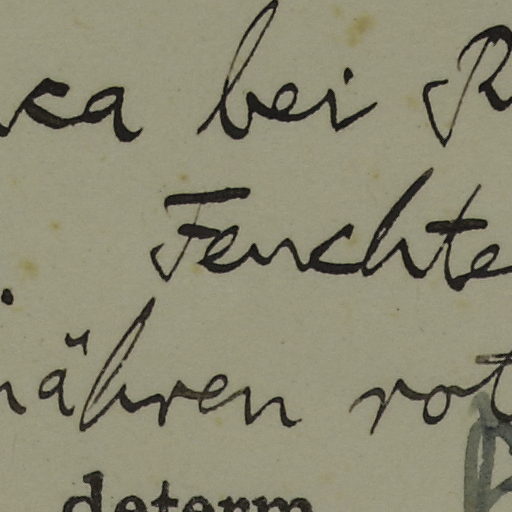 ka bei R
Feuchte
nähren rot
determ